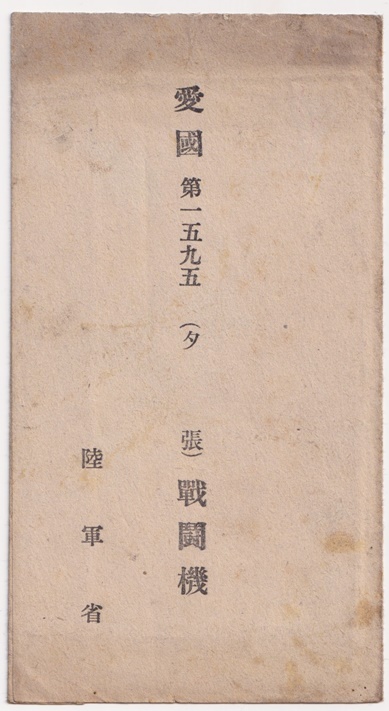 愛國第一五九五(夕張)戰鬪機
陸軍省